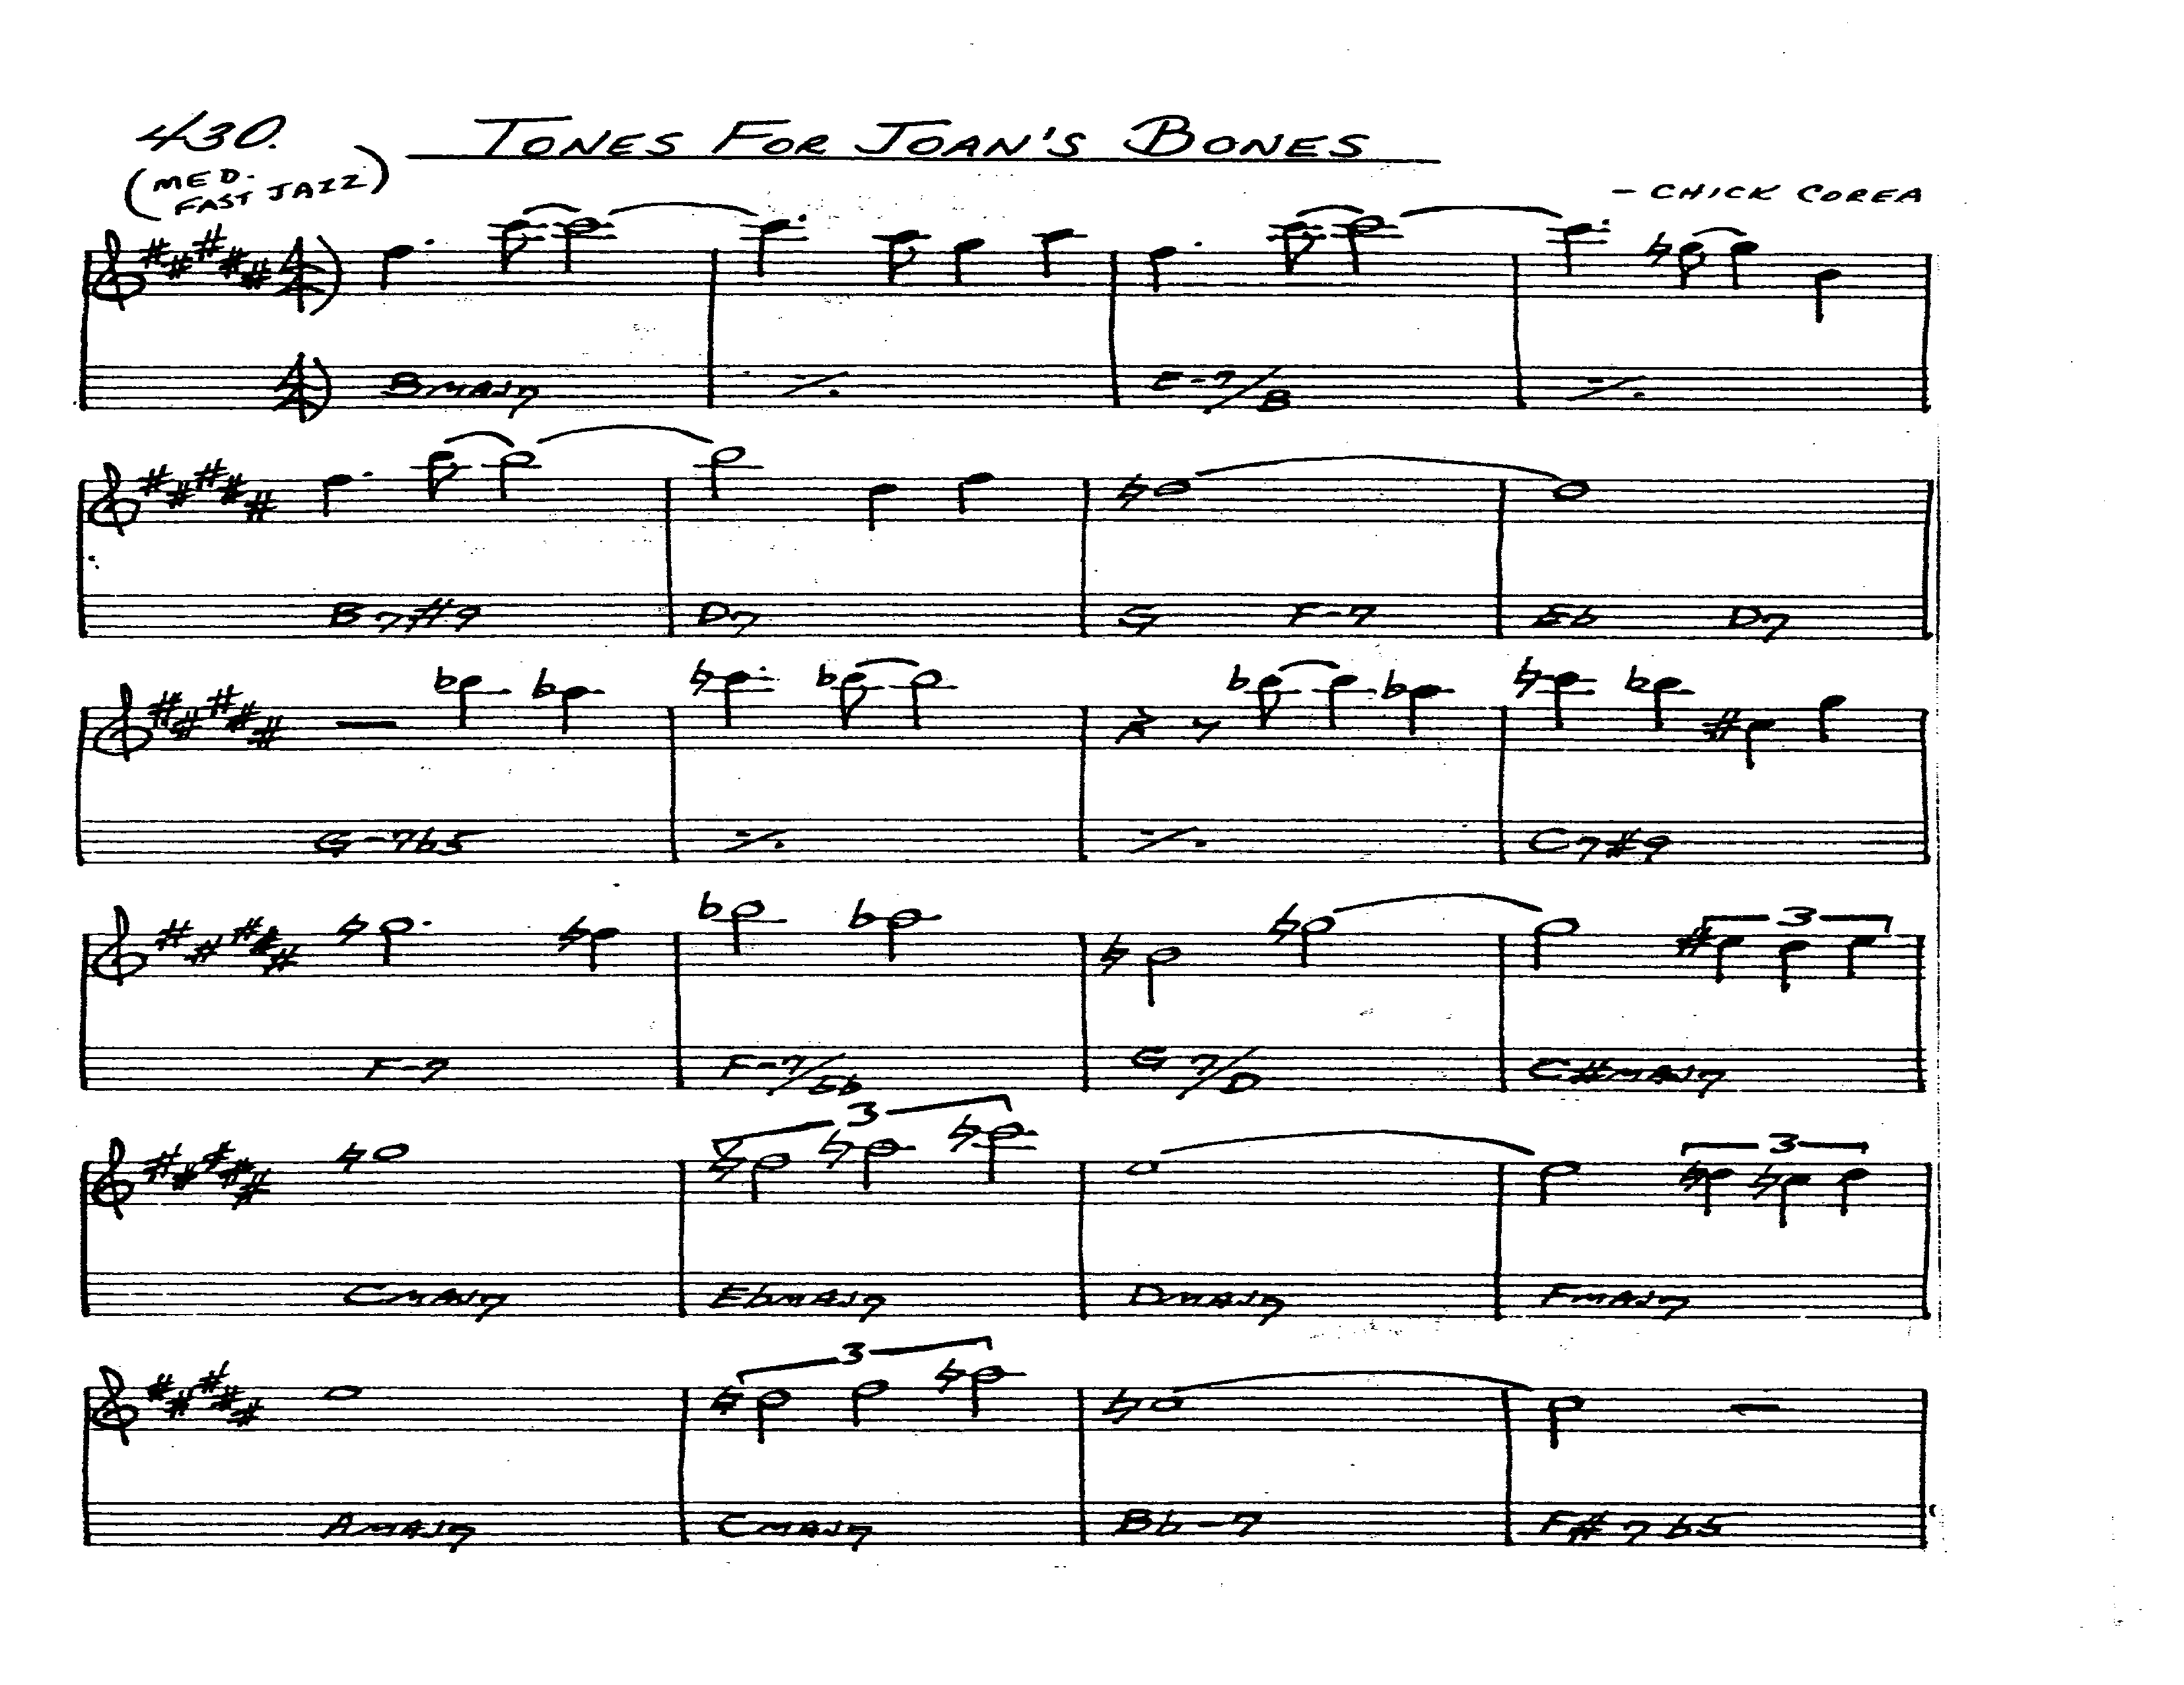 430. TONES FOR JOAN'S BONES
(MED. FAST JAZZ)
- CHICK COREA
BMAJ7 E-7/B
B7#9 D7 G F-7 Eb D7
G-7b5 C7#9
3
F-7 F-7/Bb G7/D C#MAJ7
3 3
CMAJ7 EbMAJ7 DMAJ7 FMAJ7
3
AMAJ7 CMAJ7 Bb-7 F#7b5